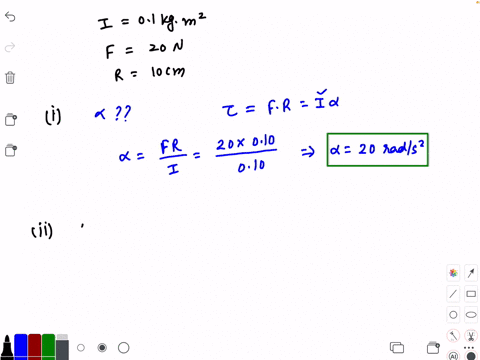 I = 0.1 kg.m²
F = 20 N
R = 10cm
(i) α ?? τ = F.R = Iα
α = FR/I = 20 x 0.10/0.10 ⇒ α = 20 rad/s²
(ii)